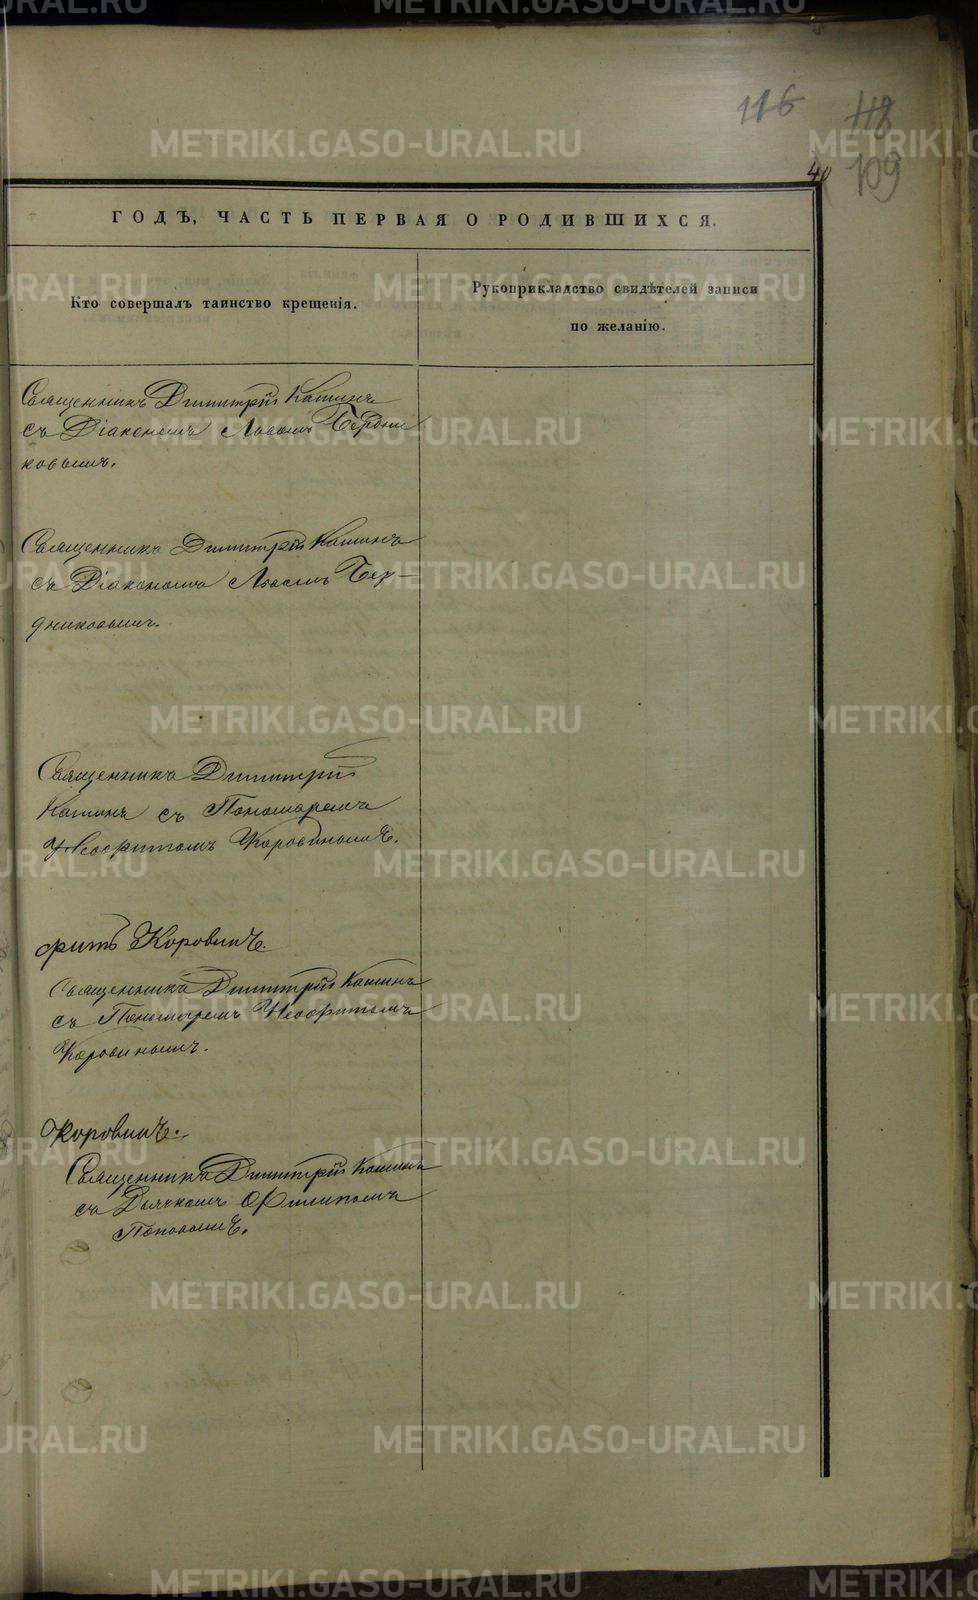 116 118
40 109
ГОДЪ, ЧАСТЬ ПЕРВАЯ О РОДИВШИХСЯ.
Кто совершалъ таинство крещенія.
Рукоприкладство свидѣтелей записи
по желанію.
Священникъ Димитрій Кашинъ
съ Діакономъ Львомъ Бердни
ковымъ.
Священникъ Димитрій Кашинъ
съ Діакономъ Львомъ Бер-
дниковымъ.
Священникъ Димитрій
Кашинъ съ Пономаремъ
Неофитомъ Коровинымъ.
фитъ Коровинъ.
Священникъ Димитрій Кашинъ
съ Пономаремъ Неофитомъ
Коровинымъ.
Коровинъ.
Священникъ Димитрій Кашинъ
съ Дьячкомъ Филипомъ
Поповымъ.
METRIKI.GASO-URAL.RU